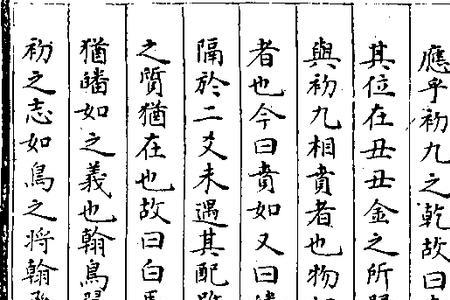 應乎初九之乾故曰
其位在丑丑金之所
與初九相賁者也物
者也今曰賁如又曰
隔於二爻未遇其配
之質猶在也故曰白馬
猶皤如之義也翰鳥
初之志如鳥之將翰